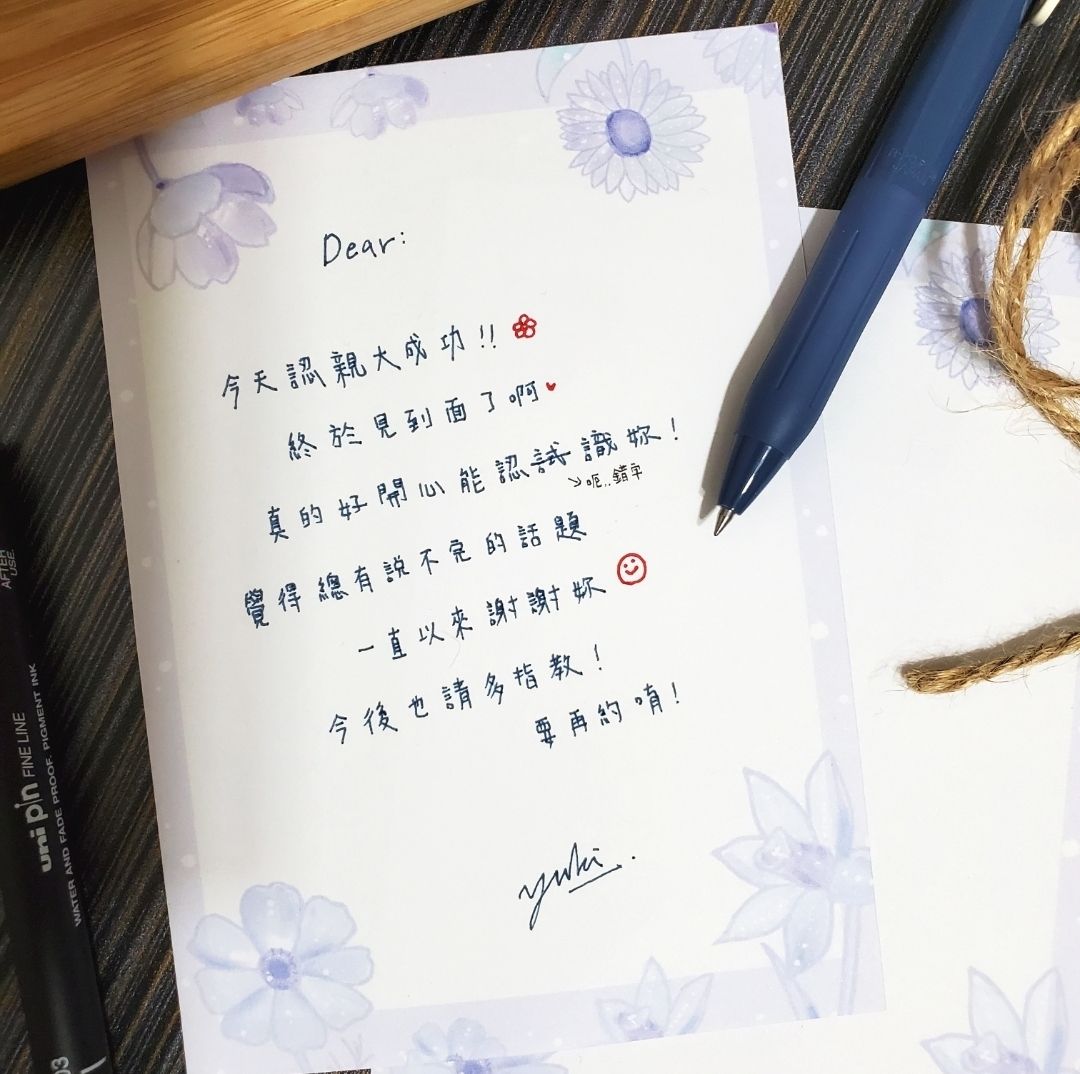 Dear:
今天認親大成功!!
終於見到面了啊
真的好開心能認試識妳!
↘呃..錯字
覺得總有說不完的話題
一直以來謝謝妳
今後也請多指教!
要再約唷!
yuki.
AFTER
USE.
uni pin FINE LINE
WATER AND FADE PROOF, PIGMENT INK
03